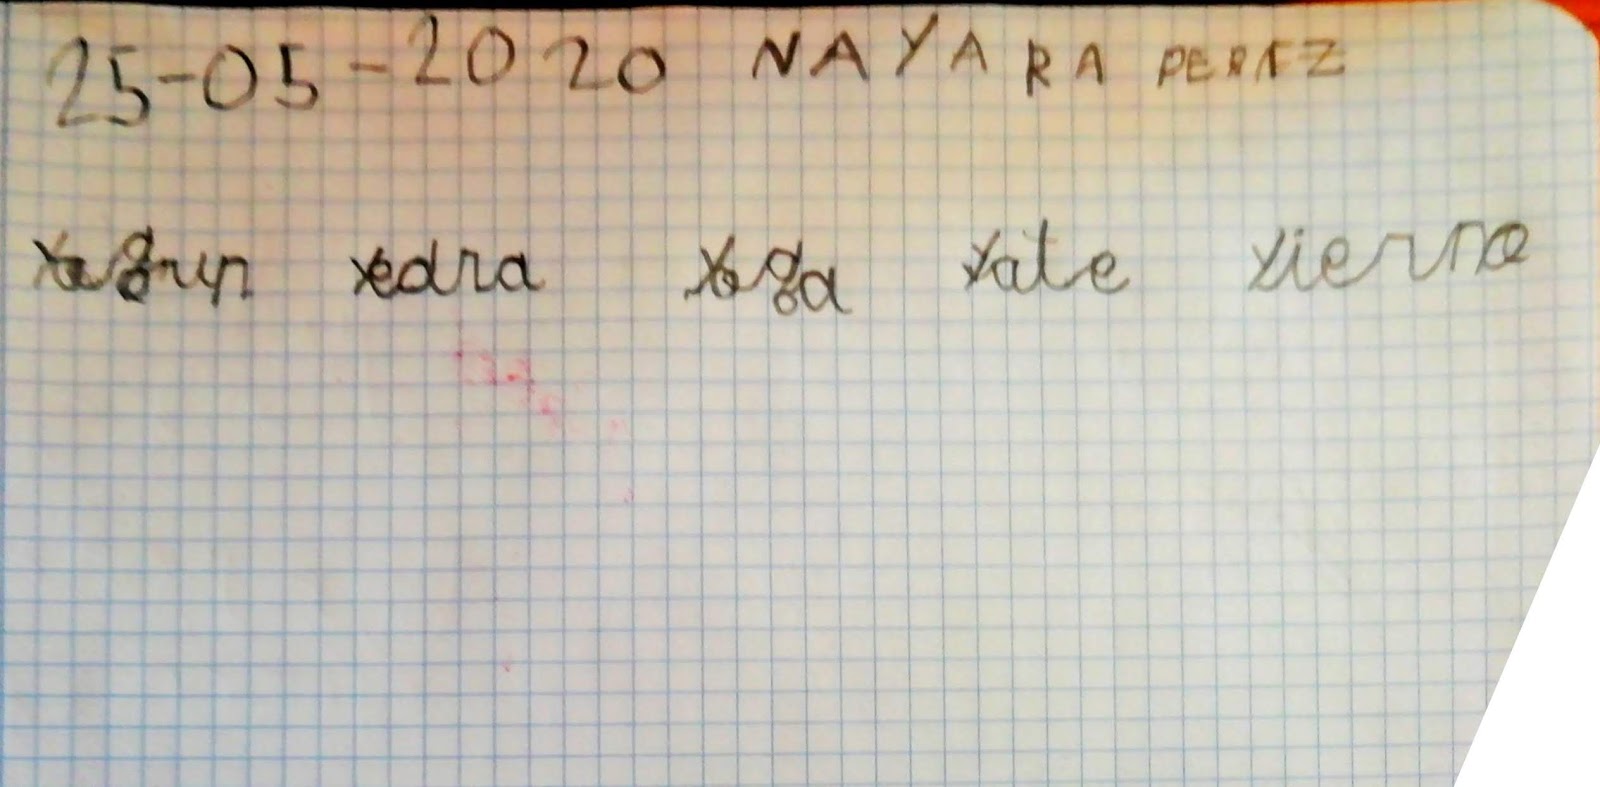 25-05-2020 NAYARA PEREZ
yedra yoga yate yierno